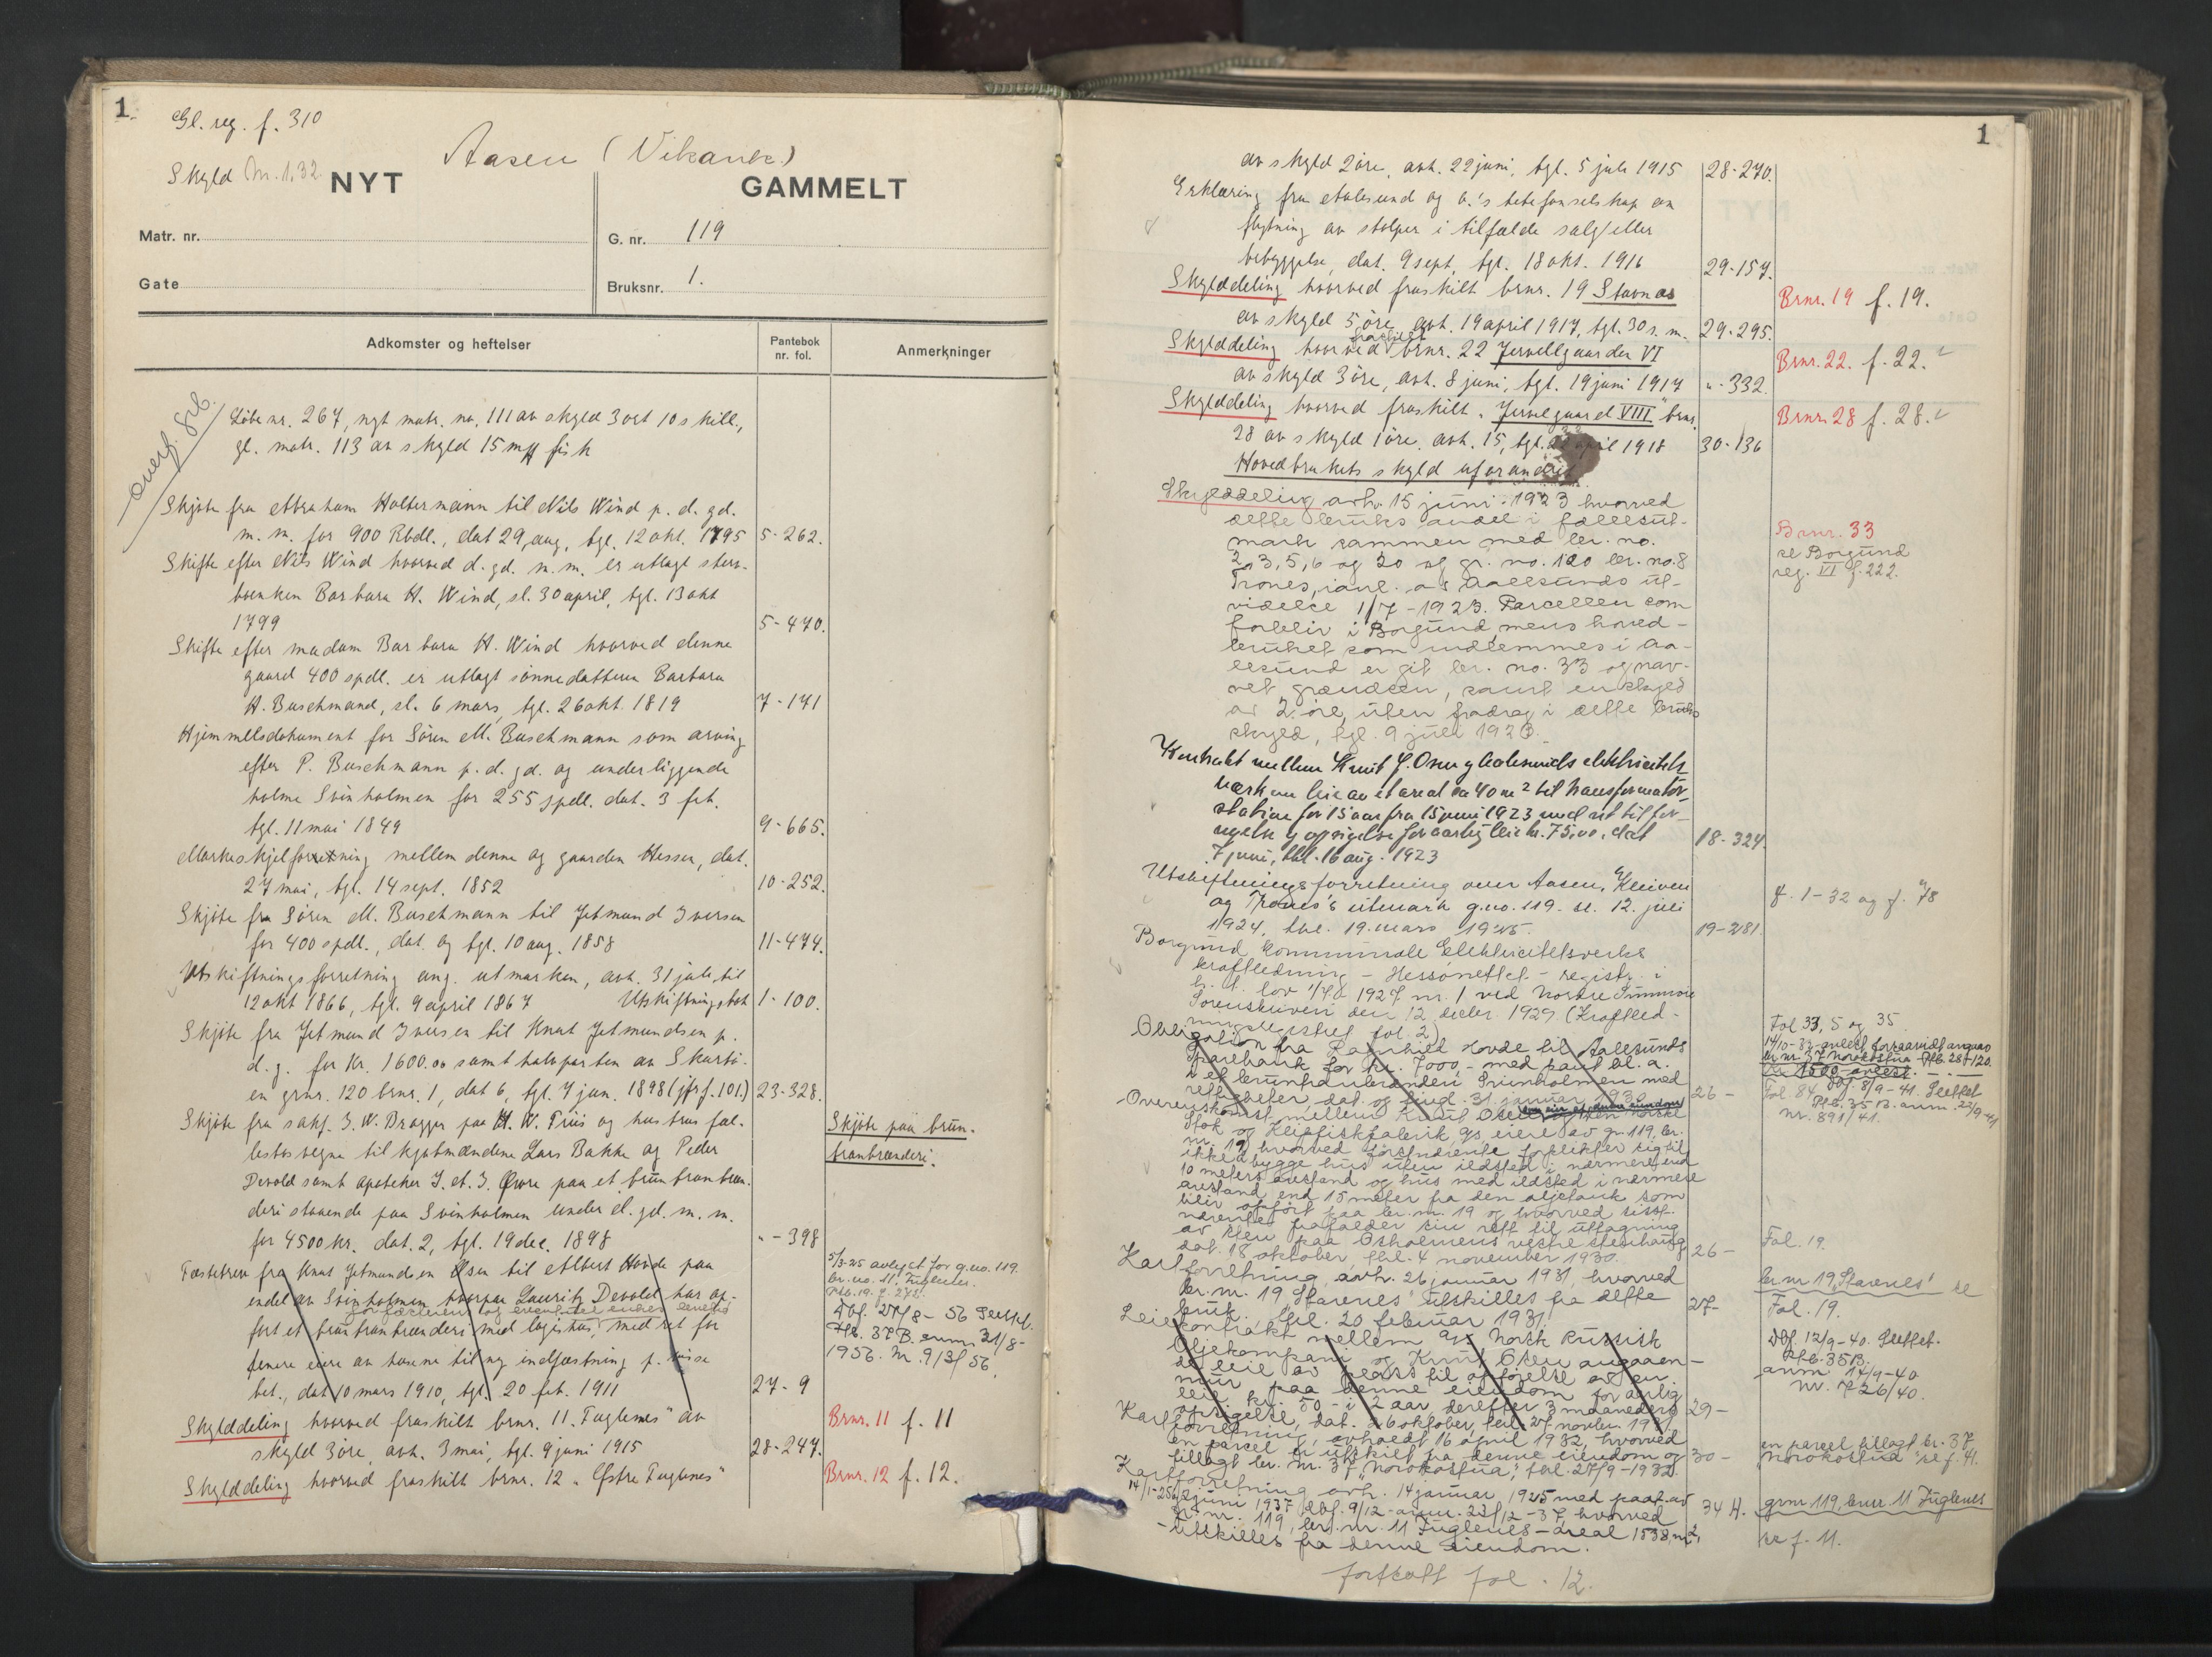 1.
Gl. reg. f. 310
Aasen (Vikank.)
Skyld M. 1.32.
NYT
GAMMELT
Matr. nr.
G. nr. 119
Gate
Bruksnr. 1.
Adkomster og heftelser
Pantebok nr. fol.
Anmerkninger
overf. grb.
Løbenr. 267, nyt matr. no. 111 av skyld 3 ort 10 skill.,
gl. matr. 113 av skyld 15 mk fisk
Skjøte fra Abraham Holtermann til Nils Wind p. d. gd.
m. m. for 900 Rbdl., dat 29 aug, tgl. 12 okt. 1795 5-262.
Skifte efter Nils Wind hvorved d. gd. m. m. er utlagt sterv-
boenken Barbara H. Wind, sl. 30 april, tgl. 13 okt
1799 5-470.
Skifte efter madam Barbara H. Wind hvorved denne
gaard 400 spdl. er utlagt sønnedatteren Barbara
H. Buschmand, sl. 6 mars, tgl. 26 okt. 1819 7-171
Hjemmelsdokument for Søren M. Buschmann som arving
efter P. Buschmann p. d. gd. og underliggende
holme Svinholmen for 255 spdl. dat. 3 feb.
tgl. 11 mai 1849 9-665.
Markeskjelforretning mellem denne og gaarden Hessen, dat.
27 mai, tgl. 14 sept. 1852 10-252.
Skjøte fra Søren M. Buschmann til Jetmund Iversen
for 400 spdl., dat. og tgl. 10 aug. 1858 11-474.
Utskiftningsforretning ang. utmarken, avh. 31 juli til
12 okt 1866, tgl. 9 april 1867 Utskiftningsbok 1-100.
Skjøte fra Jetmund Iversen til Knut Jetmundsen p.
d. g. for Kr. 1600.00 samt halvparten av Skarbø-
en grnr. 120 brnr. 1, dat 6, tgl. 7 jan. 1898 (jfr f. 101.) 23-328.
Skjøte fra sakf. I. W. Brøgger paa H. W. Friis og hustrus fæl-
lesbos vegne til kjøbmændene Lars Bakke og Peder
Devold samt apoteker J. A. J. Øwre paa et bruntranbræn-
deri staaende paa Svinholmen under d. gd. m. m.
for 4500 kr. dat. 2, tgl. 19 dec. 1898 "-398
Skjøte paa brun-
tranbrænderi.
Fæstebrev fra Knut Jetmundsen Osen til Albert Hovde paa
endel av Svinholmen hvorpaa Lauritz Devold har op-
ført et bruntranbrænderi med logishus, med ret for
senere eiere av husene til ny indfæstning p. visse
bet., dat 10 mars 1910, tgl. 20 feb. 1911 27-9
5/3-25 avlyst for g.no. 119.
br. no. 11, Fuglenes.
Ptb. 19. f. 272.
Avl. 27/8-56 Slettet.
Ptb. 37B. anm. 31/8-
1956. Nr. 913/56.
Skylddeling hvorved fraskilt brnr. 11 "Fuglenes" av
skyld 3 øre, avh. 3 mai, tgl. 9 juni 1915 28-247.
Brnr. 11 f. 11
Skylddeling hvorved fraskilt brnr. 12 "Østre Fuglenes"
Brnr. 12 f. 12.
1
av skyld 2 øre, avh. 22 juni, tgl. 5 juli 1915 28-270.
Erklæring fra Aalesund og o.'s telefonselskap om
flytning av stolper i tilfælde salg eller
bebyggelse, dat. 9 sept, tgl. 18 okt. 1916 29-157.
Skylddeling hvorved fraskilt brnr. 19 Stavnæs
av skyld 5 øre, avh. 19 april 1917, tgl. 30 s. m. 29-295.
Brnr. 19 f. 19.
Skylddeling hvorved fraskilt brnr. 22 Jervellgaarden VI
av skyld 3 øre, avh. 8 juni, tgl. 19 juni 1917 "-332.
Brnr. 22. f. 22.
Skylddeling hvorved fraskilt "Jervelgaard VIII" brnr.
28 av skyld 1 øre, avh. 15, tgl. 22 april 1918 30-136
Brnr. 28 f. 28.
Hovedbrukets skyld uforandret.
Skylddeling avh. 15 juni 1923 hvorved
dette bruks andel i fællesut-
mark sammen med br. no.
2, 3, 5, 6 og 20 og gr. no. 120 br. no. 8
Trones, i anl. av Aalesunds ut-
videlse 1/7-1923. Parcellen som
forblir i Borgund, mens hoved-
bruket som indlemmes i Aa-
lesund er git br. no. 33 og nav-
net grændsen, samt en skyld
av 2 øre, uten fradrag i dette bruks
skyld, tgl. 9 juli 1923.
Brnr. 33
se Borgund
reg. VI f. 222.
Kontrakt mellem Knut J. Osen og Aalesunds elektricitets-
værk om leie av et areal paa 40 m2 til transformator-
station for 15 aar fra 15 juni 1923 med ret til for-
nyelse og opsigelse for aarlig leie kr. 75,00, dat
7 juni, tgl. 16 aug. 1923 18-324.
Utskiftningsforretning over Aasen, Kleiven
og Trones's utmark g.no. 119. sl. 12. juli
1924, tgl. 19. mars 1925. 19-281.
f. 1-32 og f. 78
Borgund kommunale Elektricitetsverks
kraftledning - Hessønettet - registr. i
h. t. lov 1/7 1927 nr. 1 ved Nordre Sunnmøre
Sorenskriveri den 12 decbr. 1929 (Kraftled-
ningsregistret fol. 2)
Fol 33, 5 og 35.
Obligation fra Ragnhild Hovde til Aalesunds
Sparebank for kr. 7000,- med pant bl. a.
i et bruntranbrænderi Svinholmen med
rettigheter dat. og tingl. 31. januar 1930 26-
Overenskomst mellem Knut Osen og Den Norske
Stok og Klipfiskfabrik A/s, eiere av gr. 119, br.
nr. 19 hvorved førstnævnte forplikter sig til
ikke å bygge hus uten ildsted i nærmere end
10 meters avstand og hus med ildsted i nærmere
avstand end 15 meter fra den oljetank som
blir opført paa br. nr. 19 og hvorved sistn.
nævnte frafalder sin rett til uttagning
av sten paa Osholmens vestre stenhaug,
dat. 18 oktober, tgl. 4 november 1930. 26-
Fol. 19.
Kartforretning, avh. 26 januar 1931, hvorved
br. nr. 19 "Stavnes" utskilles fra dette
bruk, tgl. 20 februar 1931. 27-
br. nr 19 "Stavnes" se
Fol. 19.
Leiekontrakt mellem A/s Norsk Russisk
Oljekompani og Knut Osen angaaen-
de leie av plass til opførelse av en
mur paa denne eiendom for årlig
leie kr. 50,- i 2 aar, derefter 3 maaneders
opsigelse, dat. 26 oktober, tgl. 27 novbr. 1931 29-
Avl. 12/9-40. Slettet.
Ptb. 35B.
anm 14/9-40
nr. 726/40.
Kartforretning, avholdt 16 april 1932, hvorved
en parcel er utskilt fra denne eiendom og
tillagt br. nr. 37, "Norokostua", tgl. 27/9-1932. 30-
en parcel tillagt br. 37
"Norokostua" se f. 41.
Kartforretning avh. 14 januar 1925 med paat. av
juni 1937, avl. 9/12-anm. 23/12-37, hvorved
gr. nr. 119, br. nr. 11 Fuglenes - areal 1538, m2,
utskilles fra denne eiendom. 34 A.
grnr 119, bnr. 11 Fuglenes
se f. 11.
fortsatt fol. 12.